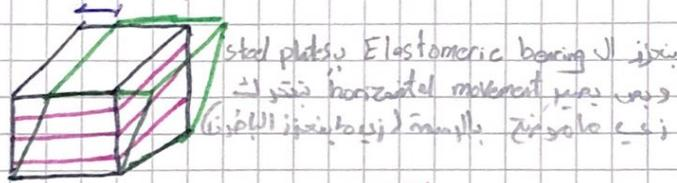 بنعزز ال Elastomeric bearing بـ steel plates
وبس يصير horizontal movement بتتحرك
زي ما موضح بالرسمة (زي ما بنعزز الباطون)